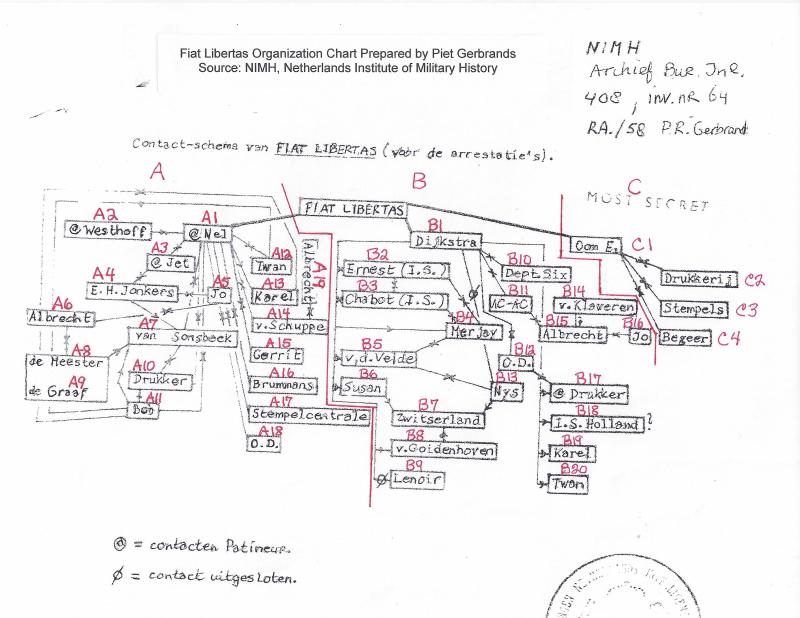 Fiat Libertas Organization Chart Prepared by Piet Gerbrands
Source: NIMH, Netherlands Institute of Military History
NIMH
Archief Bur. Inl.
408, inv.nr 64
RA./58 P.R. Gerbrand
Contact-schema van FIAT LIBERTAS (vóór de arrestatie's).
A
B
C
MOST SECRET
FIAT LIBERTAS
A1
@ Nel
A2
@ Westhoff
A3
@ Jet
A4
E.H. Jonkers
A5
Jo
A6
Albrecht
A7
van Sonsbeek
A8
de Meester
A9
de Graaf
A10
Drukker
A11
Bob
A12
Twan
A13
Karel
A14
v. Schuppe
A15
Gerrit
A16
Brummans
A17
Stempelcentrale
A18
O.D.
A19
Albrecht
B1
Dijkstra
B2
Ernest (I.S.)
B3
Chabot (I.S.)
B4
Merjay
B5
v.d. Velde
B6
Susan
B7
Zwitserland
B8
v. Goidenhoven
B9
Lenoir
B10
Dept. Six
B11
AC-AC
B12
O.D.
B13
Nys
B14
v. Klaveren
B15
Albrecht
B16
Jo
B17
@ Drukker
B18
I.S. Holland ?
B19
Karel
B20
Twan
Oom E.
C1
Drukkerij
C2
Stempels
C3
Begeer
C4
@ = contacten Patineur.
ø = contact uitgesloten.